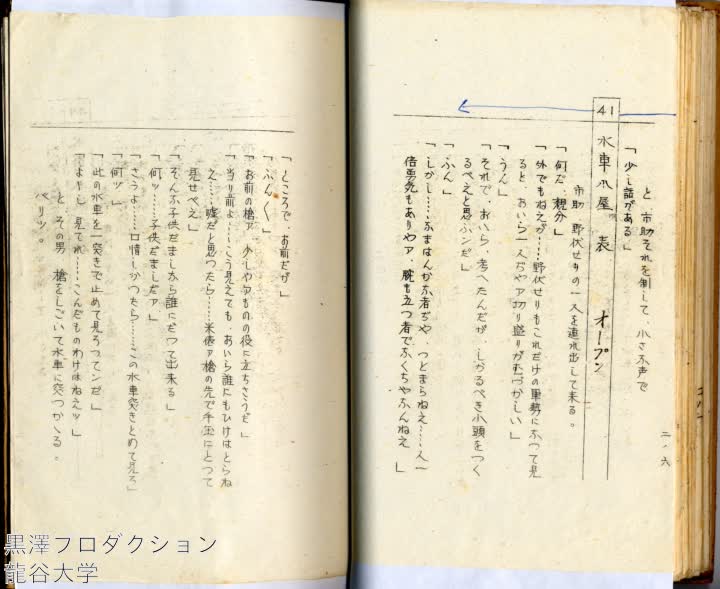 二ノ六
と、市助それを制して、小さな声で
「少し話がある」
41 水車小屋 表 オープン
市助、野伏せりの一人を連れ出して来る。
「何だ、親分」
「外でもねえが……野伏せりもこれだけの軍勢になって見
ると、おいら一人ぢやア切り盛りがむづかしい」
「うん」
「それで、おいら、考へたんだが、しかるべき小頭をつく
るべえと思ふンだ」
「ふん」
「しかし……なまはんかな者ぢや、つとまらねえ……人一
倍勇気もありやア、腕も立つ者でなくちやなんねえ」
「ところで、お前だが」
「ふんく」
「お前の槍ア、少しやアものの役に立ちさうだ」
「当り前よ……こう見えても、おいら誰にもひけはとらね
え……嘘だと思つたら……米俵ア槍の先で手玉にとつて
見せべえ」
「そんな子供だましなら誰にだつて出来る」
「何ッ……子供だましだァ」
「さうよ……口惜しかつたら……この水車突きとめて見ろ」
「何ッ」
「此の水車を一突きで止めて見ろってンだ」
「よーし、見てれ……こんなものわけはねえッ」
と、その男、槍をしごいて水車に突つかゝる。
ベリッ。
黒澤プロダクション
龍谷大学